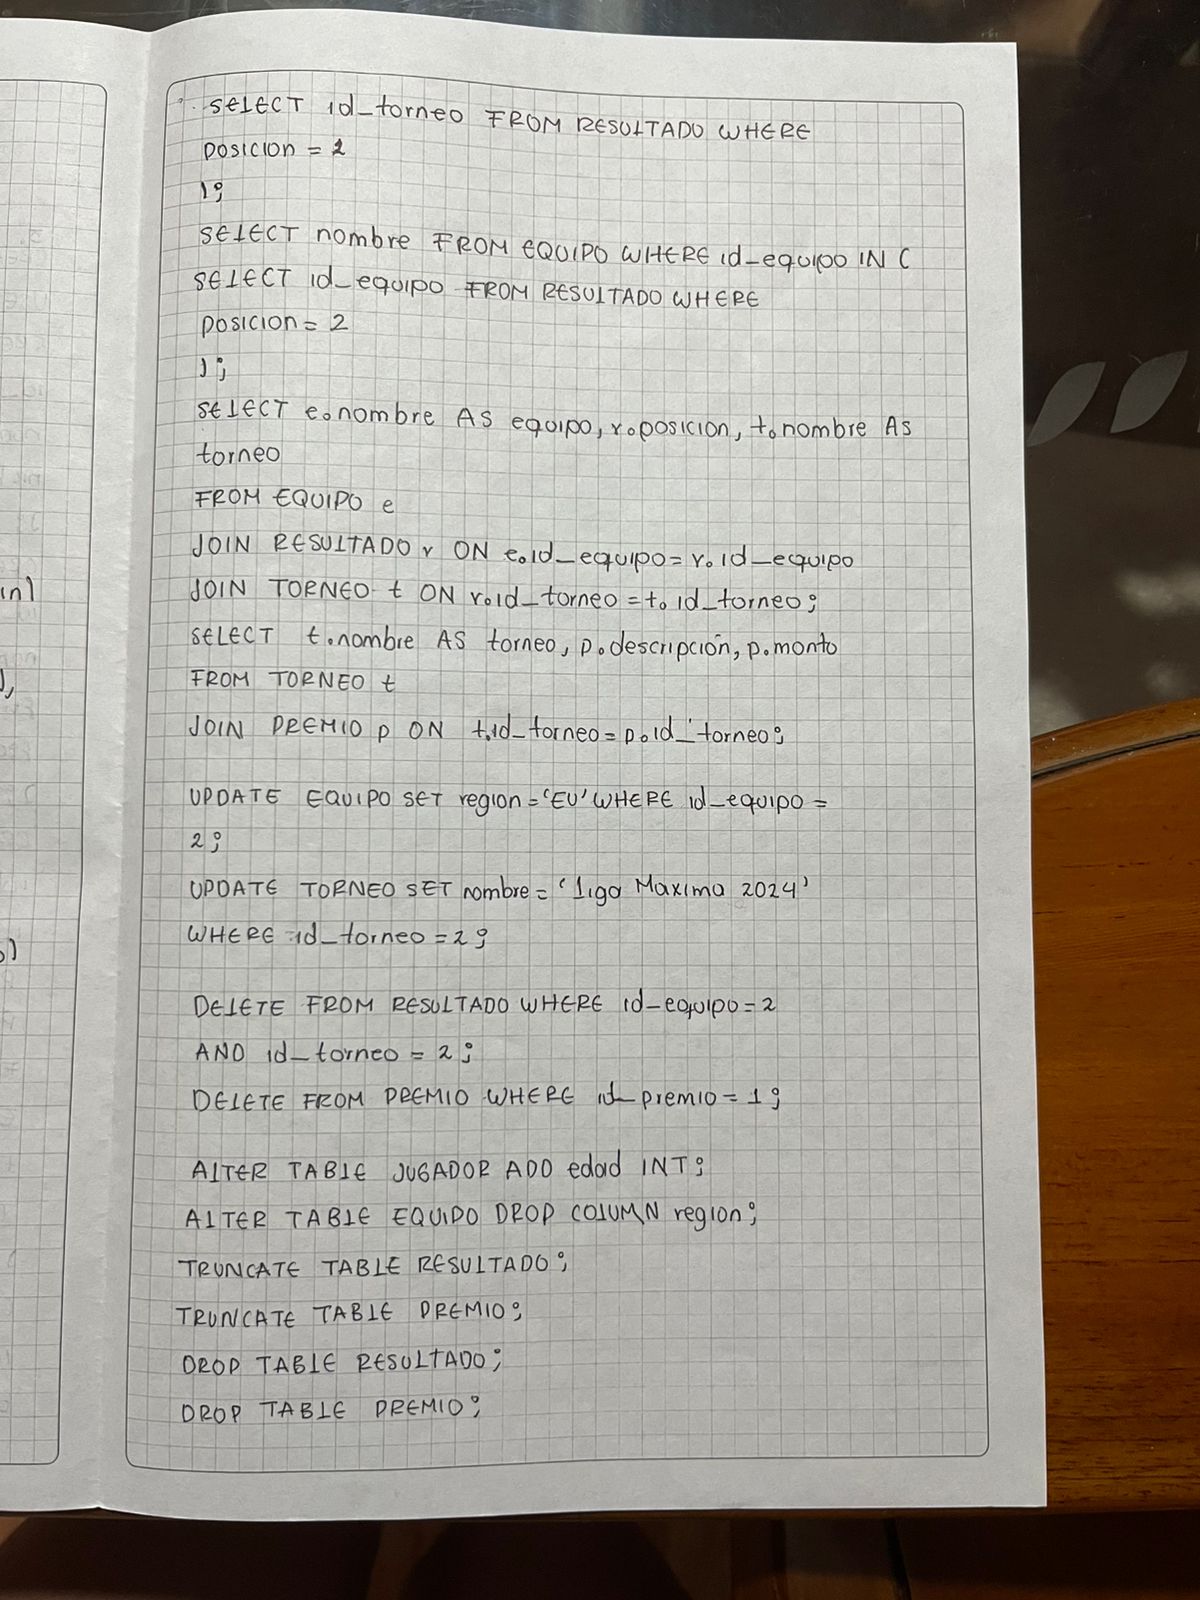 SELECT id_torneo FROM RESULTADO WHERE
posicion = 2
);
SELECT nombre FROM EQUIPO WHERE id_equipo IN (
SELECT id_equipo FROM RESULTADO WHERE
posicion = 2
);
SELECT e.nombre AS equipo, r.posicion, t.nombre AS
torneo
FROM EQUIPO e
JOIN RESULTADO r ON e.id_equipo = r.id_equipo
JOIN TORNEO t ON r.id_torneo = t.id_torneo;
SELECT t.nombre AS torneo, p.descripción, p.monto
FROM TORNEO t
JOIN PREMIO p ON t.id_torneo = p.id_torneo;
UPDATE EQUIPO SET region = 'EU' WHERE id_equipo =
2;
UPDATE TORNEO SET nombre = 'Liga Maxima 2024'
WHERE id_torneo = 2;
DELETE FROM RESULTADO WHERE id_equipo = 2
AND id_torneo = 2;
DELETE FROM PREMIO WHERE id_premio = 1;
ALTER TABLE JUGADOR ADD edad INT;
ALTER TABLE EQUIPO DROP COLUMN region;
TRUNCATE TABLE RESULTADO;
TRUNCATE TABLE PREMIO;
DROP TABLE RESULTADO;
DROP TABLE PREMIO;